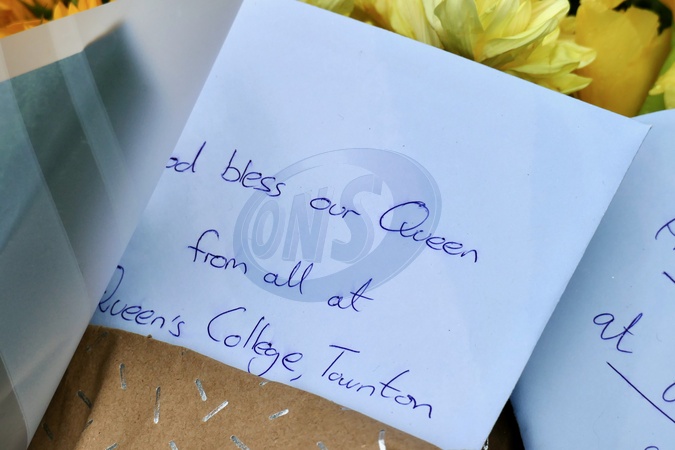 od bless our Queen
from all at
Queen's College, Taunton
ONS
at